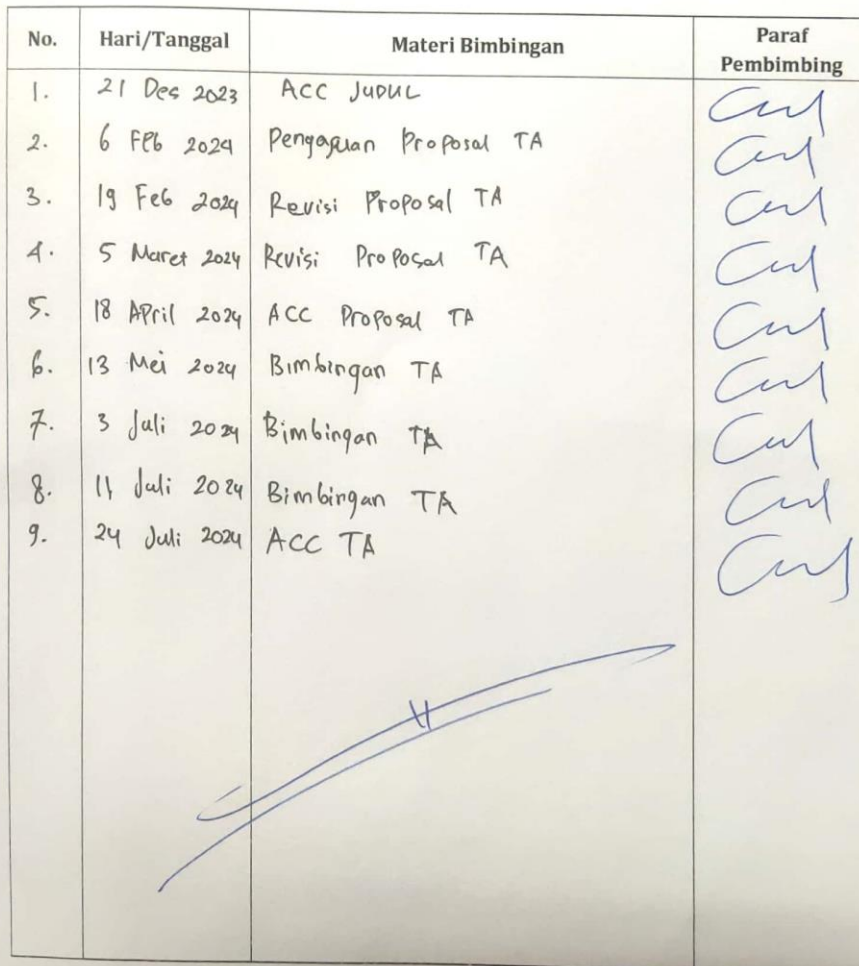 No. Hari/Tanggal Materi Bimbingan Paraf Pembimbing
1. 21 Des 2023 ACC JUDUL
2. 6 Feb 2024 Pengajuan Proposal TA
3. 19 Feb 2024 Revisi Proposal TA
4. 5 Maret 2024 Revisi Proposal TA
5. 18 April 2024 ACC Proposal TA
6. 13 Mei 2024 Bimbingan TA
7. 3 Juli 2024 Bimbingan TA
8. 11 Juli 2024 Bimbingan TA
9. 24 Juli 2024 ACC TA